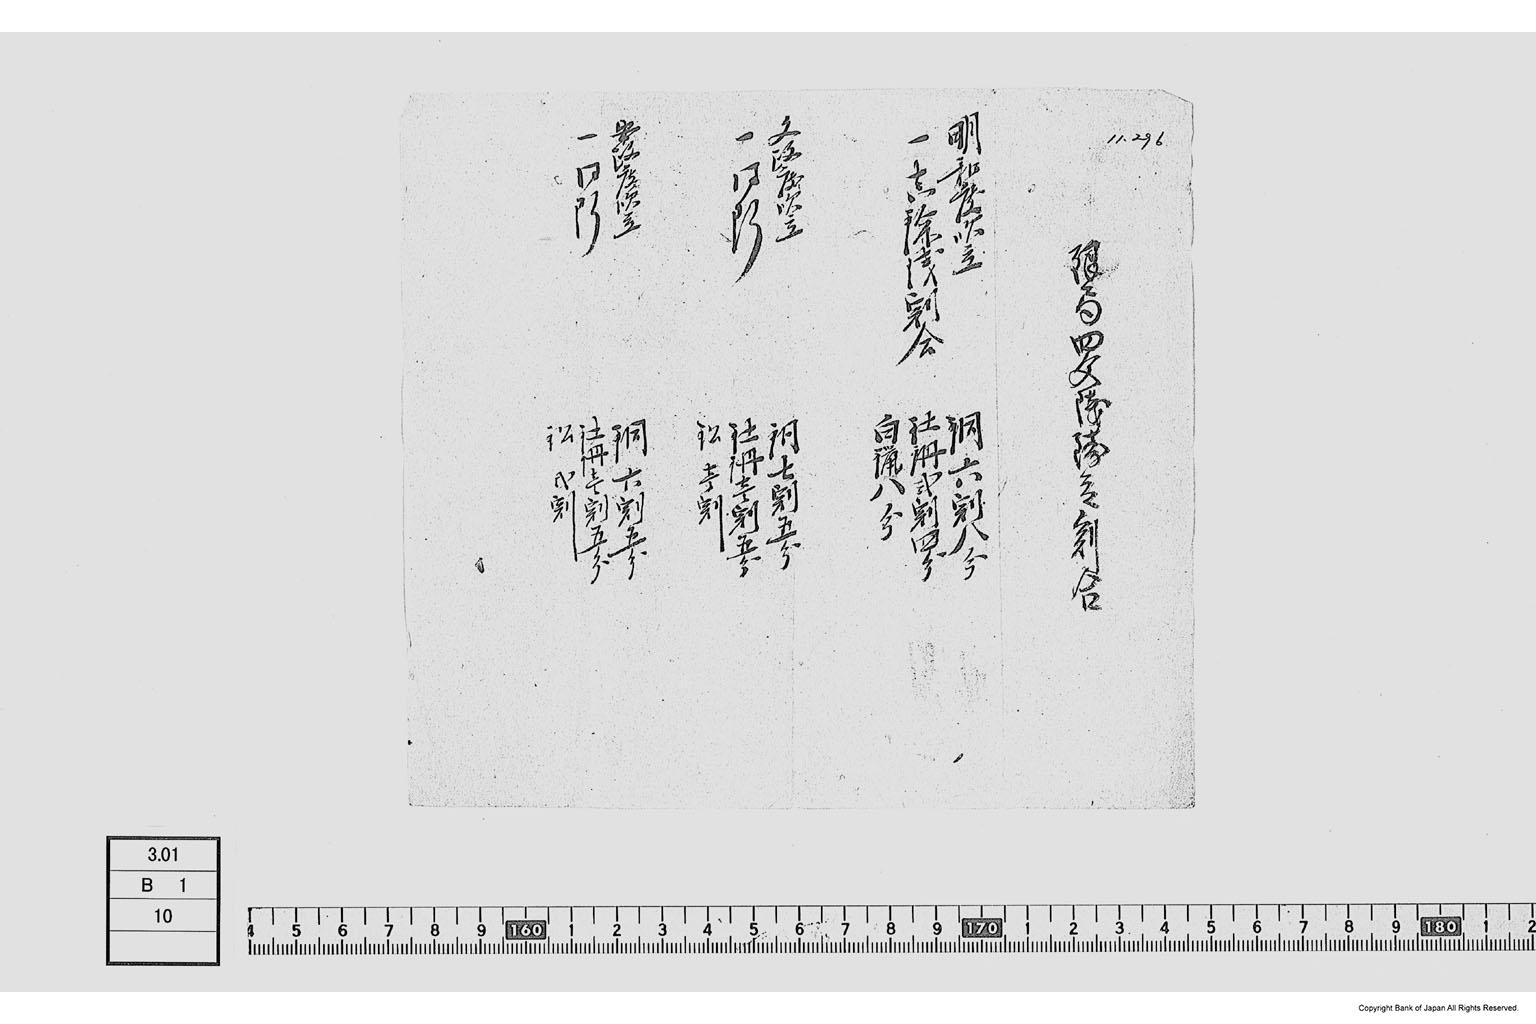 11.296
四文銭鋳立割合
明和度吹立
一 真鍮銭割合
銅六割八分
吐丹弐割四分
白鑞八分
文政度吹立
一 同断
銅七割五分
吐丹壱割五分
鉛壱割
政度吹立
一 同断
銅六割五分
吐丹壱割五分
鉛弐割
3.01
B 1
10
4 5 6 7 8 9 160 1 2 3 4 5 6 7 8 9 170 1 2 3 4 5 6 7 8 9 180 1 2
Copyright Bank of Japan All Rights Reserved.